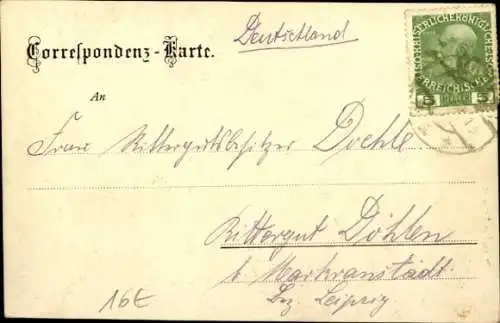 Deutschland
Correspondenz-Karte.
KAISERLICHE KÖNIGLICHE
ÖSTERREICHISCHE
5 5
An
Frau Rittergutsbesitzer Doehle
Rittergut Döhlen
b Markranstädt
Bz. Leipzig
16E